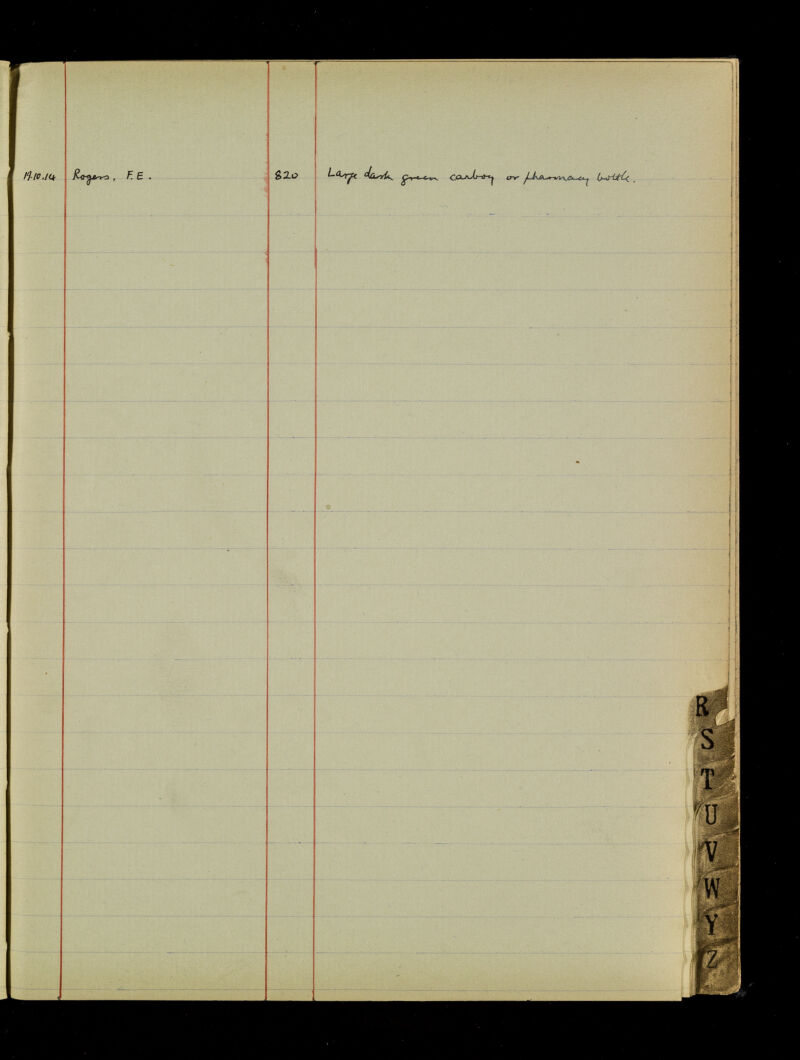 19.10.14 Rogers, F.E. 820 Large dark green carboy or pharmacy bottle.
R
S
T
U
V
W
Y
Z